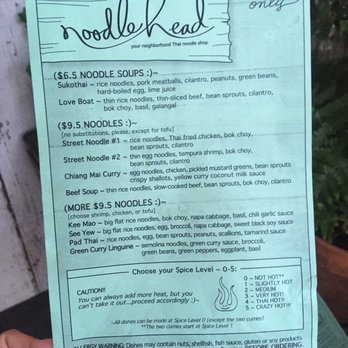 only
noodle head
your neighborhood Thai noodle shop
($6.5 NOODLE SOUPS :)~
Sukothai ~ rice noodles, pork meatballs, cilantro, peanuts, green beans,
hard-boiled egg, lime juice
Love Boat ~ thin rice noodles, thin-sliced beef, bean sprouts, cilantro,
bok choy, basil, galangal
($9.5 NOODLES :)~
[no substitutions, please, except for tofu]
Street Noodle #1 ~ rice noodles, Thai fried chicken, bok choy,
bean sprouts, cilantro
Street Noodle #2 ~ thin egg noodles, tempura shrimp, bok choy,
bean sprouts, cilantro
Chiang Mai Curry ~ egg noodles, chicken, pickled mustard greens, bean sprouts
crispy shallots, yellow curry coconut milk sauce
Beef Soup ~ thin rice noodles, slow-cooked beef, bean sprouts, bok choy, cilantro
(MORE $9.5 NOODLES :)~
[choose shrimp, chicken, or tofu]
Kee Mao ~ big flat rice noodles, bok choy, napa cabbage, basil, chili garlic sauce
See Yew ~ big flat rice noodles, egg, broccoli, napa cabbage, sweet black soy sauce
Pad Thai ~ rice noodles, egg, bean sprouts, peanuts, scallions, tamarind sauce
Green Curry Linguine ~ semolina noodles, green curry sauce, broccoli,
green beans, green peppers, eggplant, basil
Choose your Spice Level ~ 0-5:
CAUTION!!
You can always add more heat, but you
can't take it out...proceed accordingly :)~
0 ~ NOT HOT**
1 ~ SLIGHTLY HOT
2 ~ MEDIUM
3 ~ VERY HOT!
4 ~ THAI HOT!!
5 ~ CRAZY HOT!!!
~All dishes can be made at Spice Level 0 (except the two curries)
**The two curries start at Spice Level 1
ALLERGY WARNING: Dishes may contain nuts, shellfish, fish sauce, gluten or soy products.
BEFORE ORDERING.